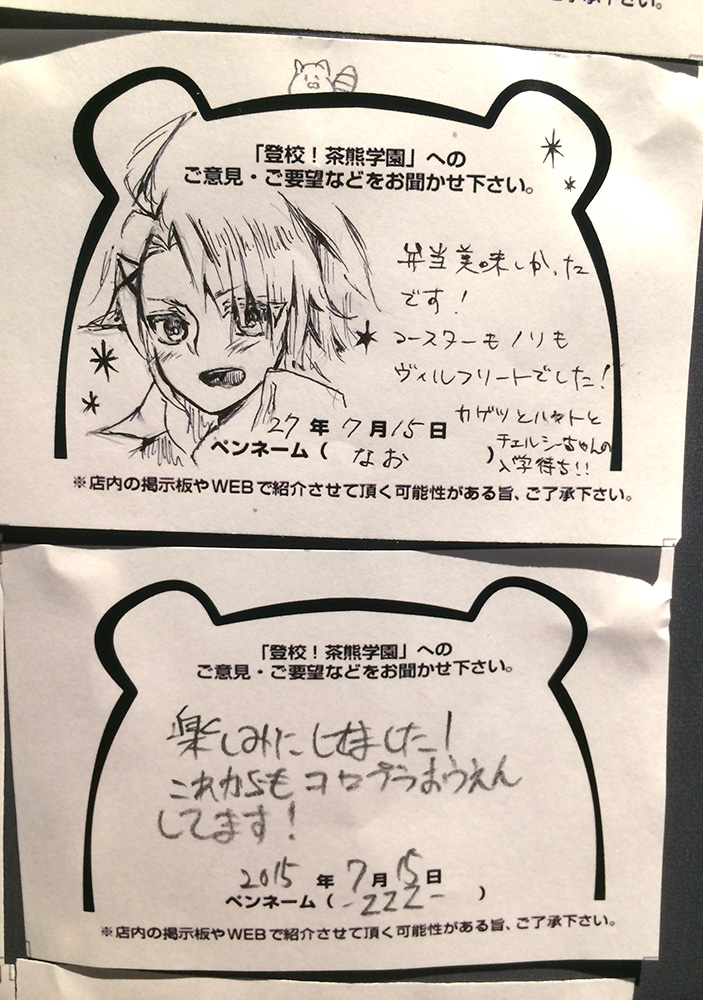 「登校！茶熊学園」への
ご意見・ご要望などをお聞かせ下さい。
弁当美味しかった
です！
コースターもノリも
ヴィルフリートでした！
カゲツとハヤトと
チェルシーちゃんの
入学待ち！！
27年7月15日
ペンネーム（ なお ）
※店内の掲示板やWEBで紹介させて頂く可能性がある旨、ご了承下さい。
「登校！茶熊学園」への
ご意見・ご要望などをお聞かせ下さい。
楽しみにしてました！
これからもコロプラおうえん
してます！
2015年7月15日
ペンネーム（ -ZZZ- ）
※店内の掲示板やWEBで紹介させて頂く可能性がある旨、ご了承下さい。